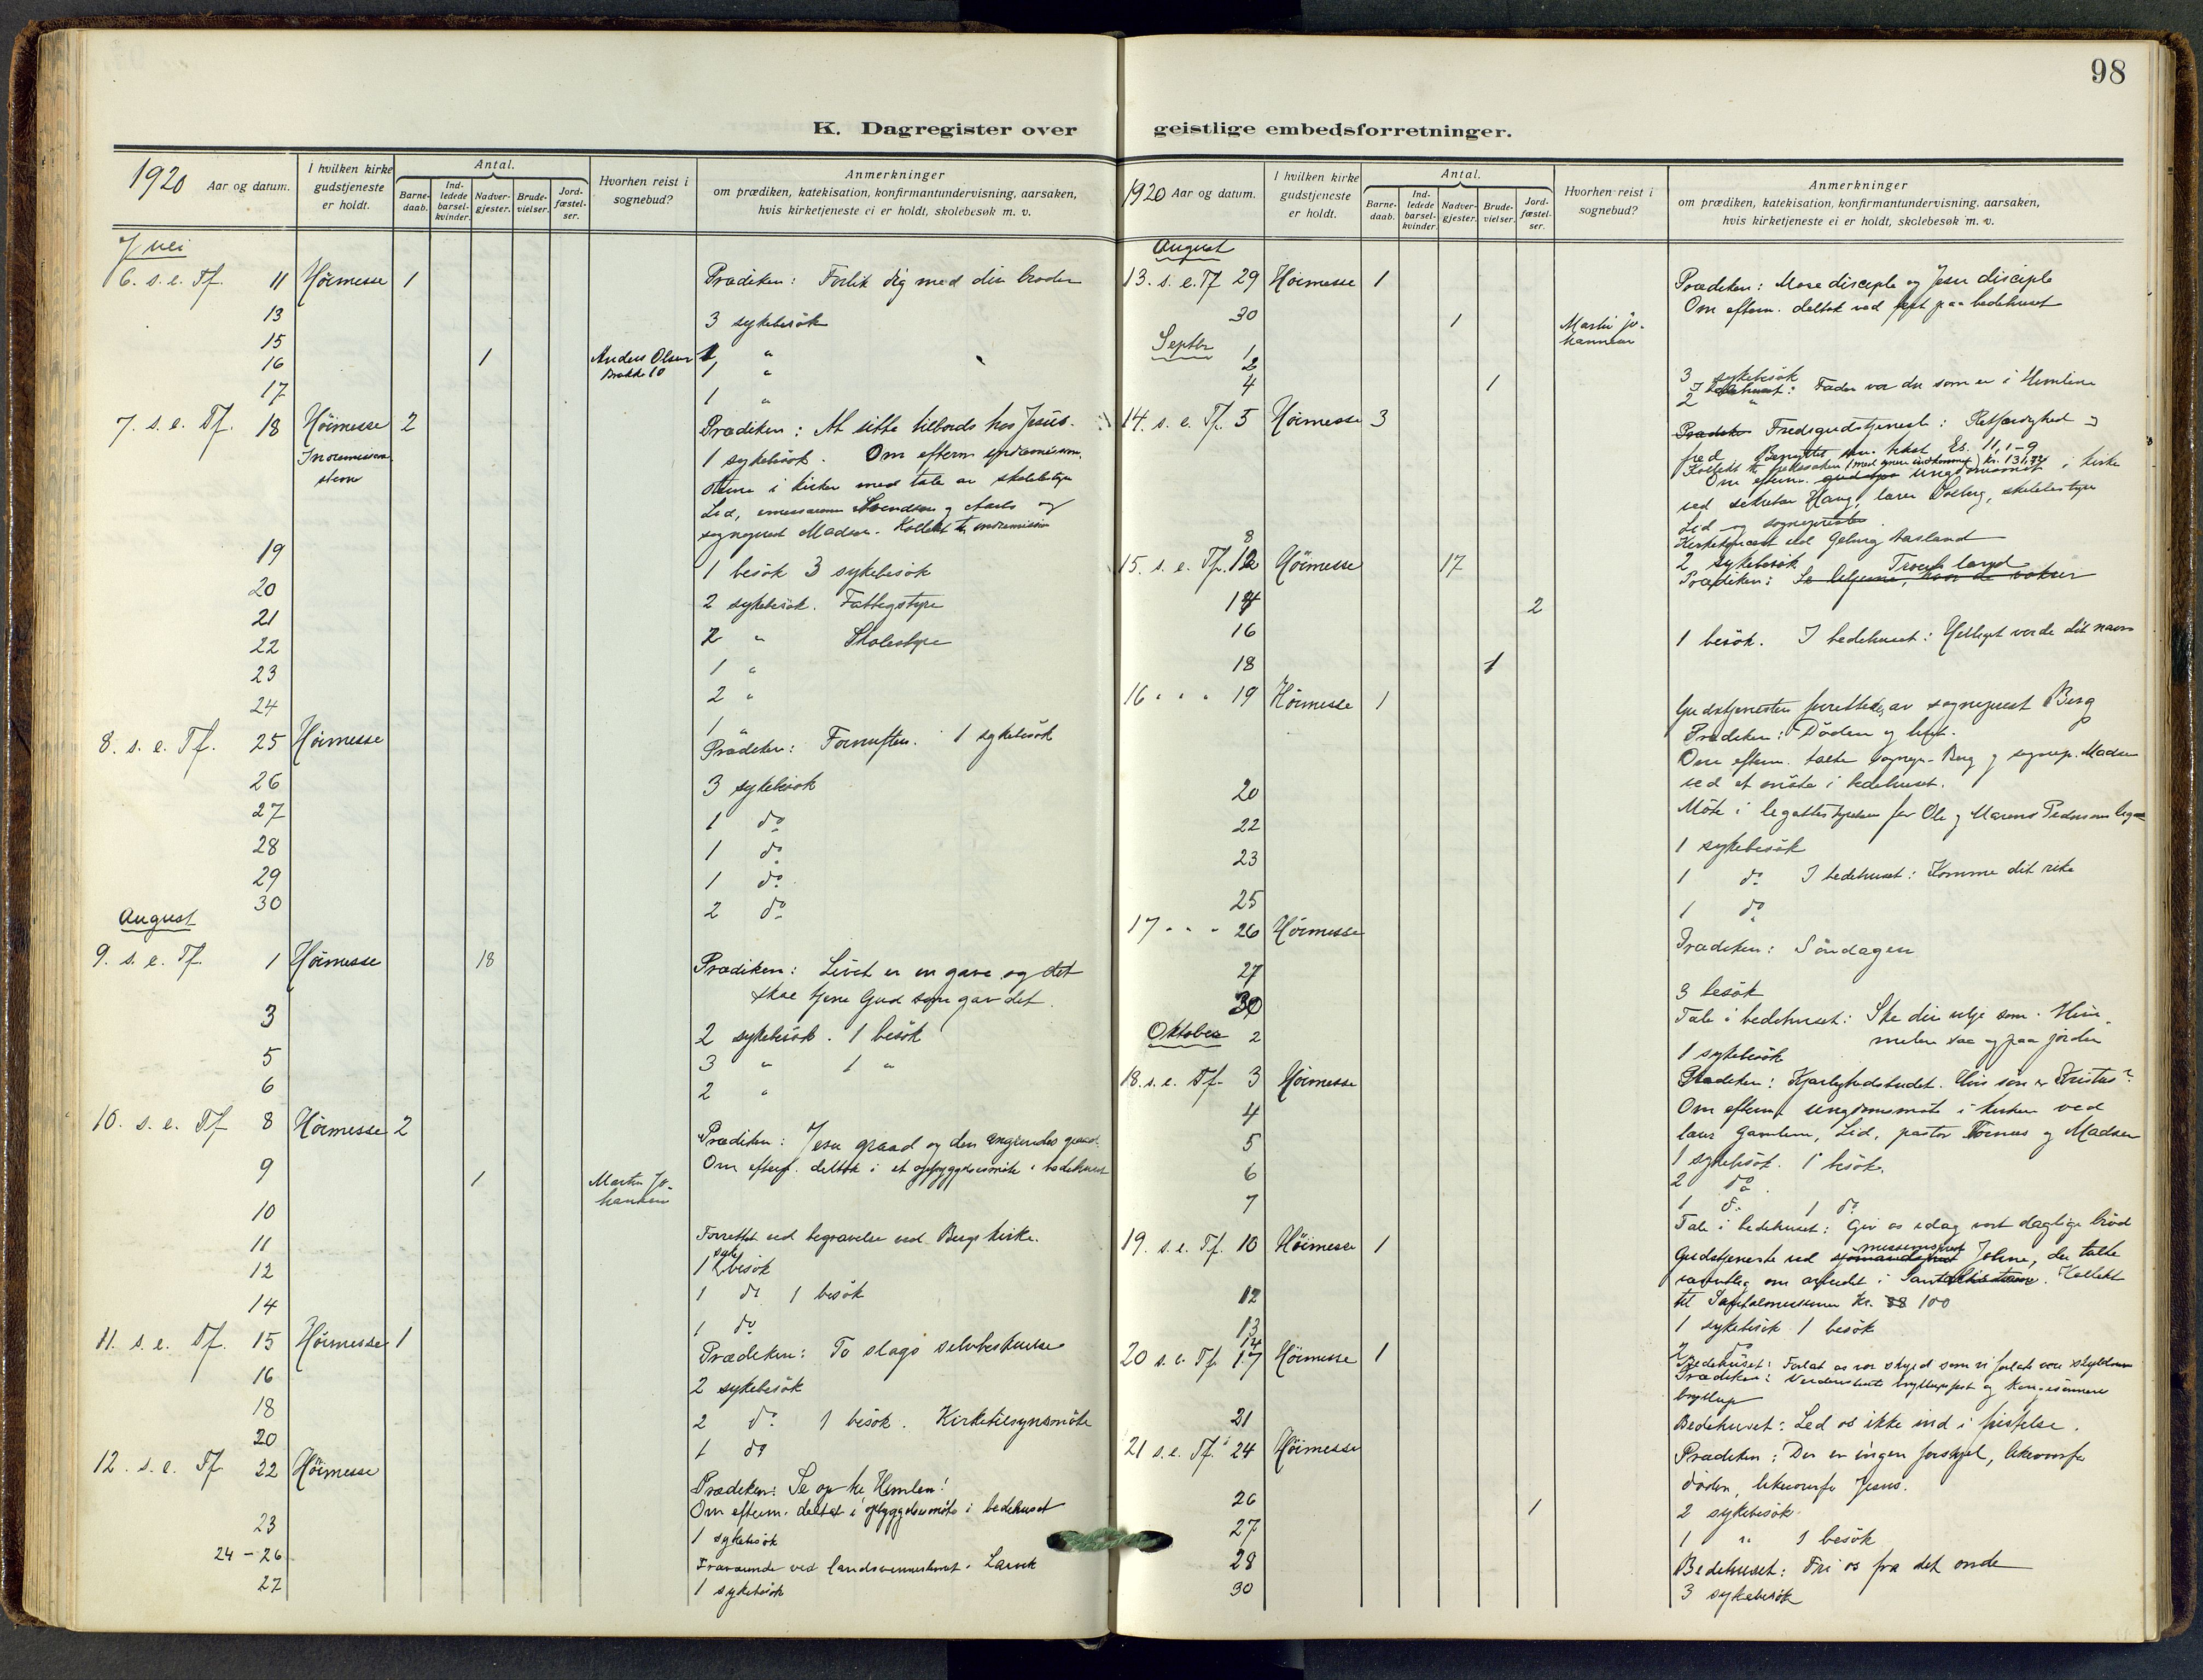 98
K. Dagregister over geistlige embedsforretninger.
1920 Aar og datum.
I hvilken kirke gudstjeneste er holdt.
Antal.
Barnedaab.
Indledede barselkvinder.
Nadvergjester.
Brudevielser.
Jordfæstelser.
Hvorhen reist i sognebud?
Anmerkninger
om prædiken, katekisation, konfirmantundervisning, aarsaken,
hvis kirketjeneste ei er holdt, skolebesøk m. v.
Juli
6. s. e. Tf. 11 Höimesse 1 Prædiken: Forlik dig med din broder
13 3 sykebesök
15 1 "
16 1 Anders Olsen Brække 10 1 "
17 1 "
7. s. e. Tf. 18 Höimesse 2 Prædiken: At sitte tilbords hos Jesus.
Indremissions stevne 1 sykebesök. Om efterm. indremissions
stevne i kirken med tale av skolebestyrer
Lid, emissærene Svendsen og
sogneprest Madsen. Kollekt til indremission
19 1 besök 3 sykebesök
20 2 sykebesök. Fattigstyre
21 2 " Skolestyre
22 1 "
23 2 "
24 1 "
8. s. e. Tf. 25 Höimesse Prædiken: Fornuften. 1 sykebesök
26 3 sykebesök
27 1 do
28 1 do
29 1 do
30 2 do
August
9. s. e. Tf. 1 Höimesse 18 Prædiken: Livet er en gave og det
skal tjene Gud som gav det.
3 2 sykebesök. 1 besök
5 3 " 1 "
6 2 "
10. s. e. Tf 8 Höimesse 2 Prædiken: Jesu graad og den angrendes graad.
Om efterm. deltok i et opbyggelsesmöte i bedehuset
9 1 Martin Johansen
10 Forrettet ved begravelse ved Bergs kirke.
11 1 sykebesök
12 1 do 1 besök
14 1 do
11. s. e. Tf. 15 Höimesse 1 Prædiken: To slags selvbeskuelse
16 2 sykebesök
18 2 do 1 besök. Kirketilsynsmöte
20 1 do
12. s. e. Tf 22 Höimesse Prædiken: Se op til Himlen!
Om efterm. deltat i opbyggelsesmöte i bedehuset
23 1 sykebesök
24-26 Fraværende ved landsmennestevnet i Larvik
27 1 sykebesök
1920 Aar og datum.
I hvilken kirke gudstjeneste er holdt.
Antal.
Barnedaab.
Indledede barselkvinder.
Nadvergjester.
Brudevielser.
Jordfæstelser.
Hvorhen reist i sognebud?
Anmerkninger
om prædiken, katekisation, konfirmantundervisning, aarsaken,
hvis kirketjeneste ei er holdt, skolebesøk m. v.
August
13. s. e. Tf 29 Höimesse 1 Prædiken: Mose disciple og Jesu disciple
Om efterm. deltok ved fest paa bedehuset
30 1 Martin Johannsen
Septbr 1 3 sykebesök
2 I bedehuset: Fader vor du som er i Himlene
4 1 2 "
14. s. e. Tf. 5 Höimesse 3 Prædiken Fredsgudstjeneste: Retfærdighed og
fred. Benyttet som tekst Es. 11, 1-9
Kollekt til fredssaken (med senere indkommet) kr. 131,72
Om efterm. gudstje ungdomsmöte i kirken
ved sekretær Haug, lærer Solberg, skolebestyrer
Lid og sogneprester.
8 Kirkekoncert ved Aasland
2 sykebesök
15. s. e. Tf. 12 Höimesse 17 Prædiken: Se liljerne, hvor de vokser Troens land
14 2
16 1 besök. I bedehuset: Helliget vorde dit navn
18 1
16 " " " 19 Höimesse 1 Gudstjenesten forrettedes av sogneprest Berg
Prædiken: Döden og livet.
Om efterm. talte sognepr. Berg og sognep. Madsen
ved et möte i bedehuset.
20 Möte i legatbestyrelsen for Ole og Marens Pedersens legat
22 1 sykebesök
23 1 do I bedehuset: Komme dit rike
25 1 do
17 " " " 26 Höimesse Prædiken: Söndagen
27 3 besök
30 Tale i bedehuset: Ske din vilje som i Himmelen saa og paa jorden
Oktober 2 1 sykebesök
18. s. e. Tf. 3 Höimesse Prædiken: Kjærlighedsbudet. Hvis sön er Kristus?
Om efterm. ungdomsmöte i kirken ved
lærer Gamlem, Lid, pastor Tornæs og Madsen
4 1 sykebesök. 1 besök.
5 2 do
6 1 do 1 do
7 Tale i bedehuset: Giv os idag vort daglige bröd
19. s. e. Tf. 10 Höimesse 1 Gudstjeneste ved sjömandsprest missionsprest Johne, der talte
væsentlig om arbeidet i Santalmissionen. Kollekt
til Santalmissionen Kr. 98 100
12 1 sykebesök 1 besök
13 2 do
14 Bedehuset: Forlat os vor skyld som vi forlate vore skyldnere
20 s. e. Tf. 17 Höimesse 1 Prædiken: Verdens bryllupsfest og kongesönnens
bryllup
21 Bedehuset: Led os ikke ind i fristelse.
21 s. e. Tf. 24 Höimesse Prædiken: Der er ingen forskjel, likeoverfor
döden, likeoverfor Jesus.
26 1 2 sykebesök
27 1 " 1 besök
28 Bedehuset: Fri os fra det onde
30 3 sykebesök